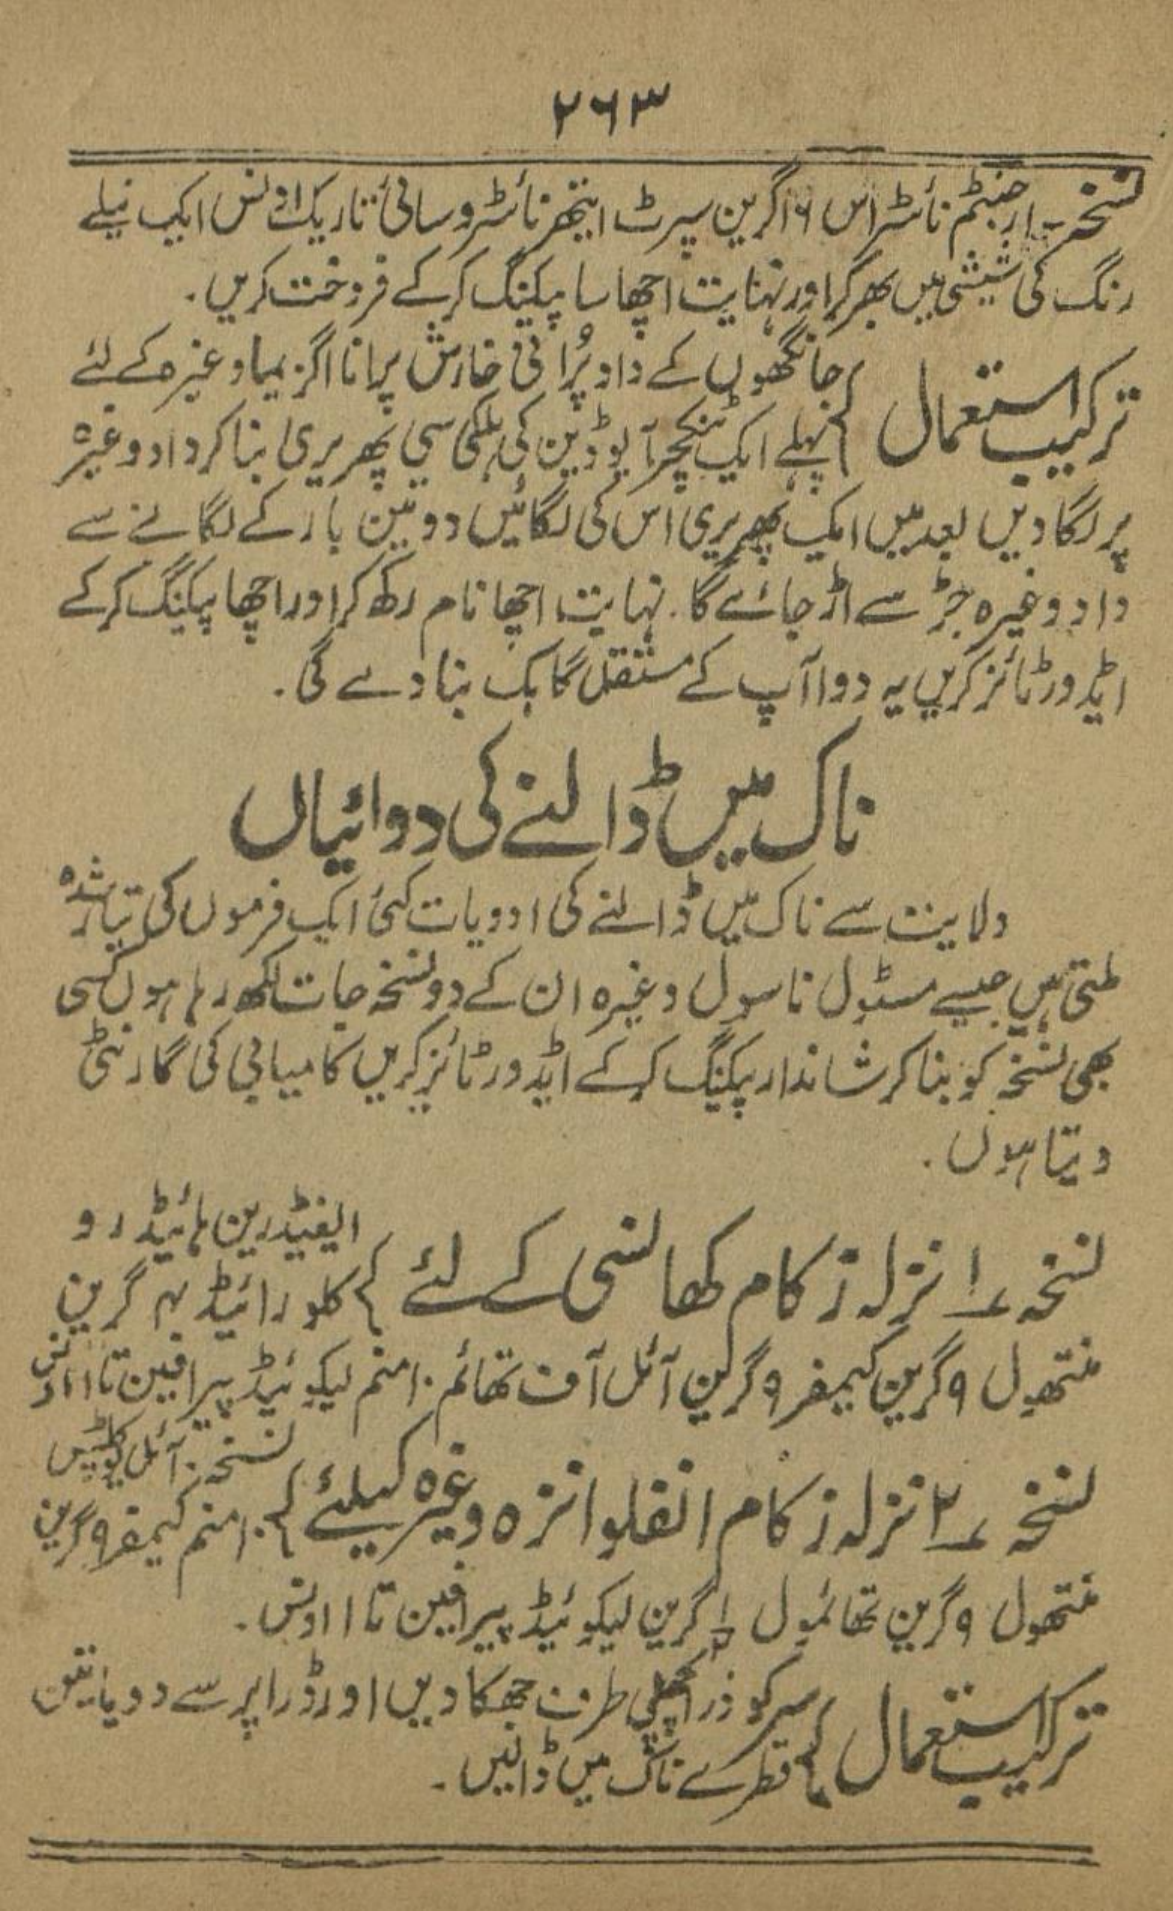 ۲۶۳
نسخہ۔ ارجنٹم نائٹراس ۱۶ گرین سپرٹ ایتھر نائٹروسائی تا ریک اونس ایک نیلے
رنگ کی شیشی میں بھر کر اور نہایت اچھا سا پیکنگ کر کے فروخت کریں۔
ترکیب استعمال } جانگھوں کے داد پُرانی خارش پرانا اگزیما وغیرہ کے لئے
پہلے ایک ٹنکچر آیوڈین کی ہلکی سی پھریری بنا کر داد وغیرہ
پر لگا دیں بعد میں ایک پھریری اس کی لگائیں دو تین بار کے لگانے سے
داد وغیرہ جڑ سے اڑ جائے گا۔ نہایت اچھا نام رکھ کر اور اچھا پیکنگ کر کے
ایڈورٹائز کریں یہ دوا آپ کے مستقل گاہک بنا دے گی۔
ناک میں ڈالنے کی دوائیاں
ولایت سے ناک میں ڈالنے کی ادویات کئی ایک فرموں کی تیار شدہ
ملتی ہیں جیسے مسٹول ناسول وغیرہ ان کے دو نسخہ جات لکھ رہا ہوں کسی
بھی نسخہ کو بنا کر شاندار پیکنگ کر کے ایڈورٹائز کریں کامیابی کی گارنٹی
دیتا ہوں۔
نسخہ ۱ نزلہ زکام کھانسی کے لئے } ایفیڈرین ہائیڈرو
کلورائیڈ ۴ گرین
منتھول ۹ گرین کیمفر ۹ گرین آئل آف تھائم ۱۰ منم لیکوئیڈ پیرافین تا ۱ اونس
نسخہ ۲ نزلہ زکام انفلوانزہ وغیرہ کیلئے } نسخہ: آئل
۱۰ منم کیمفر ۹ گرین
منتھول ۹ گرین تھائمول ½ گرین لیکوئیڈ پیرافین تا ۱ اونس۔
ترکیب استعمال } سر کو ذرا پچھلی طرف جھکا دیں اور ڈراپر سے دو یا تین
قطرے ناک میں ڈالیں۔